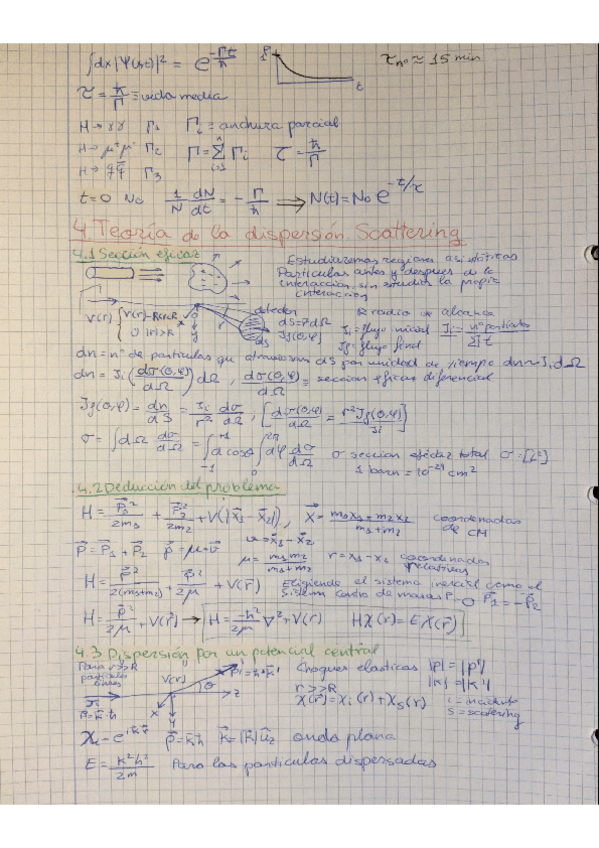 ∫dx|Ψ(x,t)|² = e^(-Γt/ħ)    P 1    t    τn⁰ ≈ 15 min
τ = ħ/Γ ≡ vida media
H → γγ  Γ₁    Γi ≡ anchura parcial
H → μ⁺μ⁻  Γ₂    Γ = Σ(i=1)^n Γi    τ = ħ/Γ
H → q q̄  Γ₃
t=0  N₀    1/N dN/dt = -Γ/ħ  ⟹  N(t) = N₀ e^(-t/τ)
4 Teoría de la dispersión. Scattering
4.1 Sección eficaz
Estudiaremos regiones asintóticas
Partículas antes y después de la
interacción, sin estudiar la propia
interacción
V(r) { V(r)  r<R
0  |r|>R
x  y  r
detector
dS = r²dΩ
Jf(θ,φ)
dS
R radio de alcance
Ji = flujo inicial    Ji = nº partículas /
Jf = flujo final
dn = nº de partículas que atraviesan dS por unidad de tiempo dn ~ Ji dΩ
dn = Ji (dσ(θ,φ)/dΩ) dΩ , dσ(θ,φ)/dΩ = sección eficaz diferencial
Jf(θ,φ) = dn/dS = Ji/r² dσ/dΩ , [dσ(θ,φ)/dΩ = r² Jf(θ,φ)/Ji]
σ = ∫dΩ dσ/dΩ = ∫₋₁^(+1) d cosθ ∫₀^(2π) dφ dσ/dΩ    σ sección eficaz total σ = [L²]
1 barn = 10⁻²⁴ cm²
4.2 Deducción del problema
H = P₁²/2m₁ + P₂²/2m₂ + V(|x₁ - x₂|) , X = (m₁x₁ + m₂x₂)/(m₁+m₂)  coordenadas de CM
P = P₁ + P₂    p = μ·v    μ = m₁m₂/(m₁+m₂)    r = x₁ - x₂  coordenadas relativas
H = P²/2(m₁+m₂) + p²/2μ + V(r)    Eligiendo el sistema inercial como el
sistema centro de masas P=0  P₁ = -P₂
H = p²/2μ + V(r) → H = -ħ²/2μ ∇² + V(r)    Hχ(r) = Eχ(r)
4.3 Dispersión por un potencial central
Para r>>R
partículas
libres
V(r)    p' = ħ·k'    θ    z
Choques elásticos |p| = |p'|
|k| = |k'|
r >> R
χ(r) = χi(r) + χs(r)    i = incidente
s = scatering
p = k·ħ    x    y
χi ~ e^(ikr)    p = kħ    k = |k| uz  onda plana
E = k²ħ²/2m    Para las partículas dispersadas